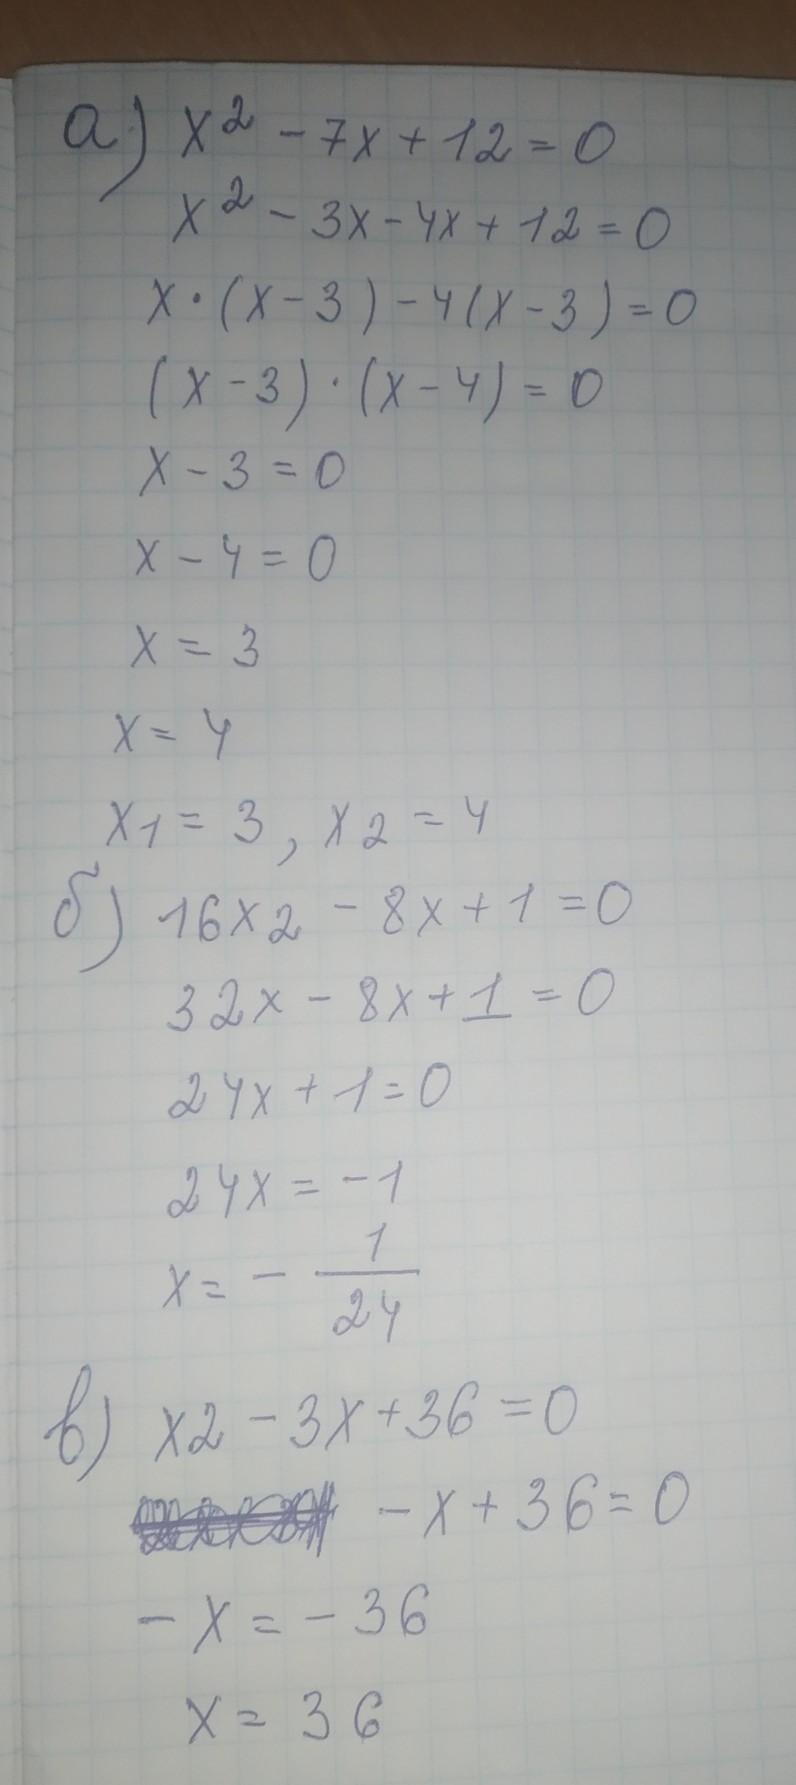 а) x² - 7x + 12 = 0
x² - 3x - 4x + 12 = 0
x · (x - 3) - 4(x - 3) = 0
(x - 3) · (x - 4) = 0
x - 3 = 0
x - 4 = 0
x = 3
x = 4
x1 = 3, x2 = 4
б) 16x2 - 8x + 1 = 0
32x - 8x + 1 = 0
24x + 1 = 0
24x = -1
x = - 1/24
в) x2 - 3x + 36 = 0
-x + 36 = 0
-x = -36
x = 36